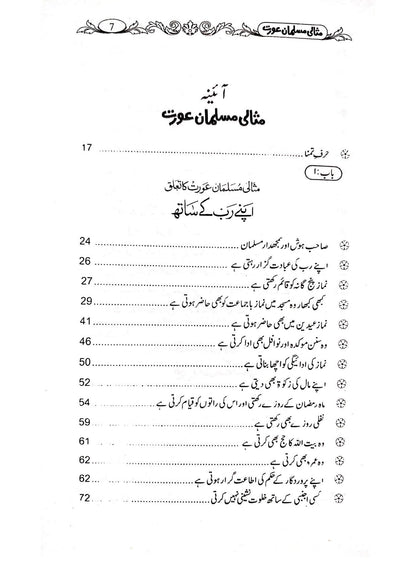 7 مثالی مسلمان عورت
آئینہ
مثالی مسلمان عورت
حرفِ تمنا ........ 17
باب: ا
مثالی مسلمان عورت کا تعلق
اپنے رب کے ساتھ
صاحب ہوش اور سمجھدار مسلمان ........ 24
اپنے رب کی عبادت گزار رہتی ہے ........ 26
نماز پنج گانہ کو قائم رکھتی ہے ........ 27
کبھی کبھار وہ مسجد میں نماز با جماعت کو بھی حاضر ہوتی ہے ........ 29
نماز عیدین میں بھی حاضر ہوتی ہے ........ 41
وہ سنن مؤکدہ اور نوافل بھی ادا کرتی ہے ........ 46
نماز کی ادائیگی کو اچھا بناتی ہے ........ 50
اپنے مال کی زکوۃ بھی دیتی ہے ........ 52
ماہ رمضان کے روزے رکھتی اور اس کی راتوں کو قیام کرتی ہے ........ 54
نفلی روزے بھی رکھتی ہے ........ 59
وہ بیت اللہ کا حج بھی کرتی ہے ........ 61
وہ عمرہ بھی کرتی ہے ........ 62
اپنے پروردگار کے حکم کی اطاعت گزار ہوتی ہے ........ 62
کسی اجنبی کے ساتھ خلوت نشینی نہیں کرتی ........ 72